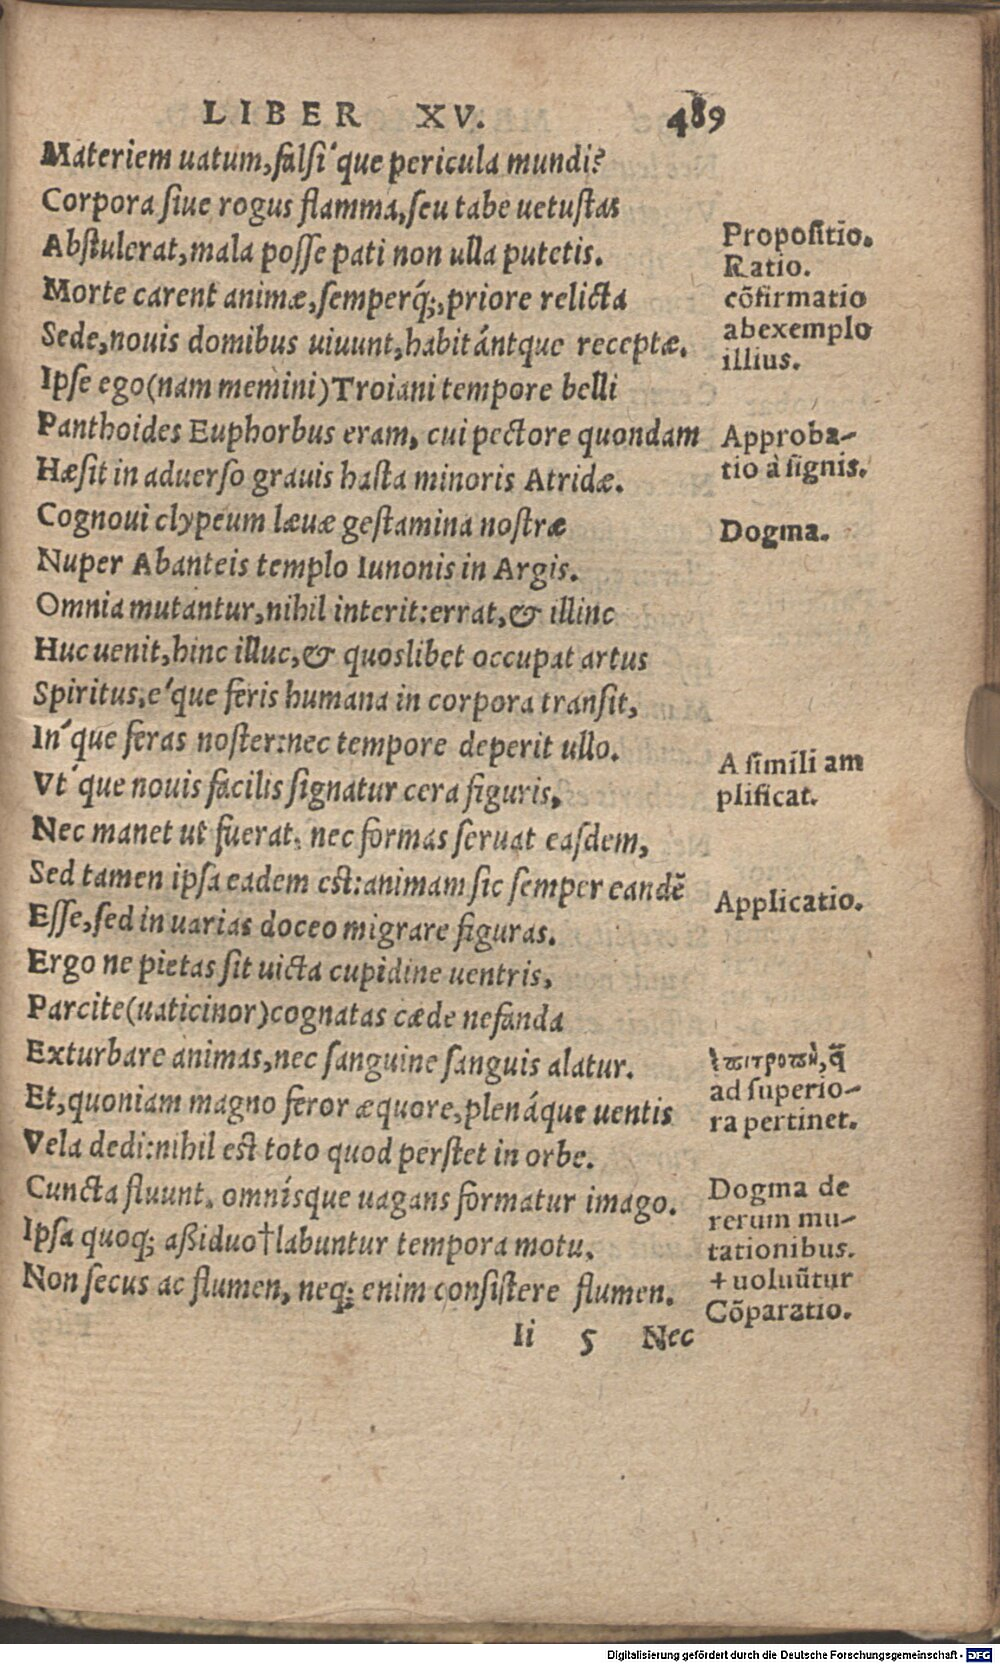 LIBER XV. 489
Materiem uatum, falsi´que pericula mundi?
Corpora siue rogus flamma, seu tabe uetustas
Abstulerat, mala posse pati non ulla putetis.
Morte carent animæ, semperq́;, priore relicta
Sede, nouis domibus uiuunt, habitántque receptæ.
Ipse ego (nam memini) Troiani tempore belli
Panthoides Euphorbus eram, cui pectore quondam
Hæsit in aduerso grauis hasta minoris Atridæ.
Cognoui clypeum læuæ gestamina nostræ
Nuper Abanteis templo Iunonis in Argis.
Omnia mutantur, nihil interit: errat, & illinc
Huc uenit, hinc illuc, & quoslibet occupat artus
Spiritus, e´que feris humana in corpora transit,
In´que feras noster: nec tempore deperit ullo.
Vt´que nouis facilis signatur cera figuris,
Nec manet ut fuerat, nec formas seruat easdem,
Sed tamen ipsa eadem est: animam sic semper eandē
Esse, sed in uarias doceo migrare figuras.
Ergo ne pietas sit uicta cupidine uentris,
Parcite (uaticinor) cognatas cæde nefanda
Exturbare animas, nec sanguine sanguis alatur.
Et, quoniam magno feror æquore, plenáque uentis
Vela dedi: nihil est toto quod perstet in orbe.
Cuncta fluunt, omnísque uagans formatur imago.
Ipsa quoq; aßiduo†labuntur tempora motu,
Non secus ac flumen, neq; enim consistere flumen.
Ii 5 Nec
Propositio.
Ratio.
cōfirmatio
ab exemplo
illius.
Approba-
tio à signis.
Dogma.
A simili am
plificat.
Applicatio.
ἐπιτροπὴ, q̄
ad superio-
ra pertinet.
Dogma de
rerum mu-
tationibus.
+ uoluūtur
Cōparatio.
Digitalisierung gefördert durch die Deutsche Forschungsgemeinschaft - DFG